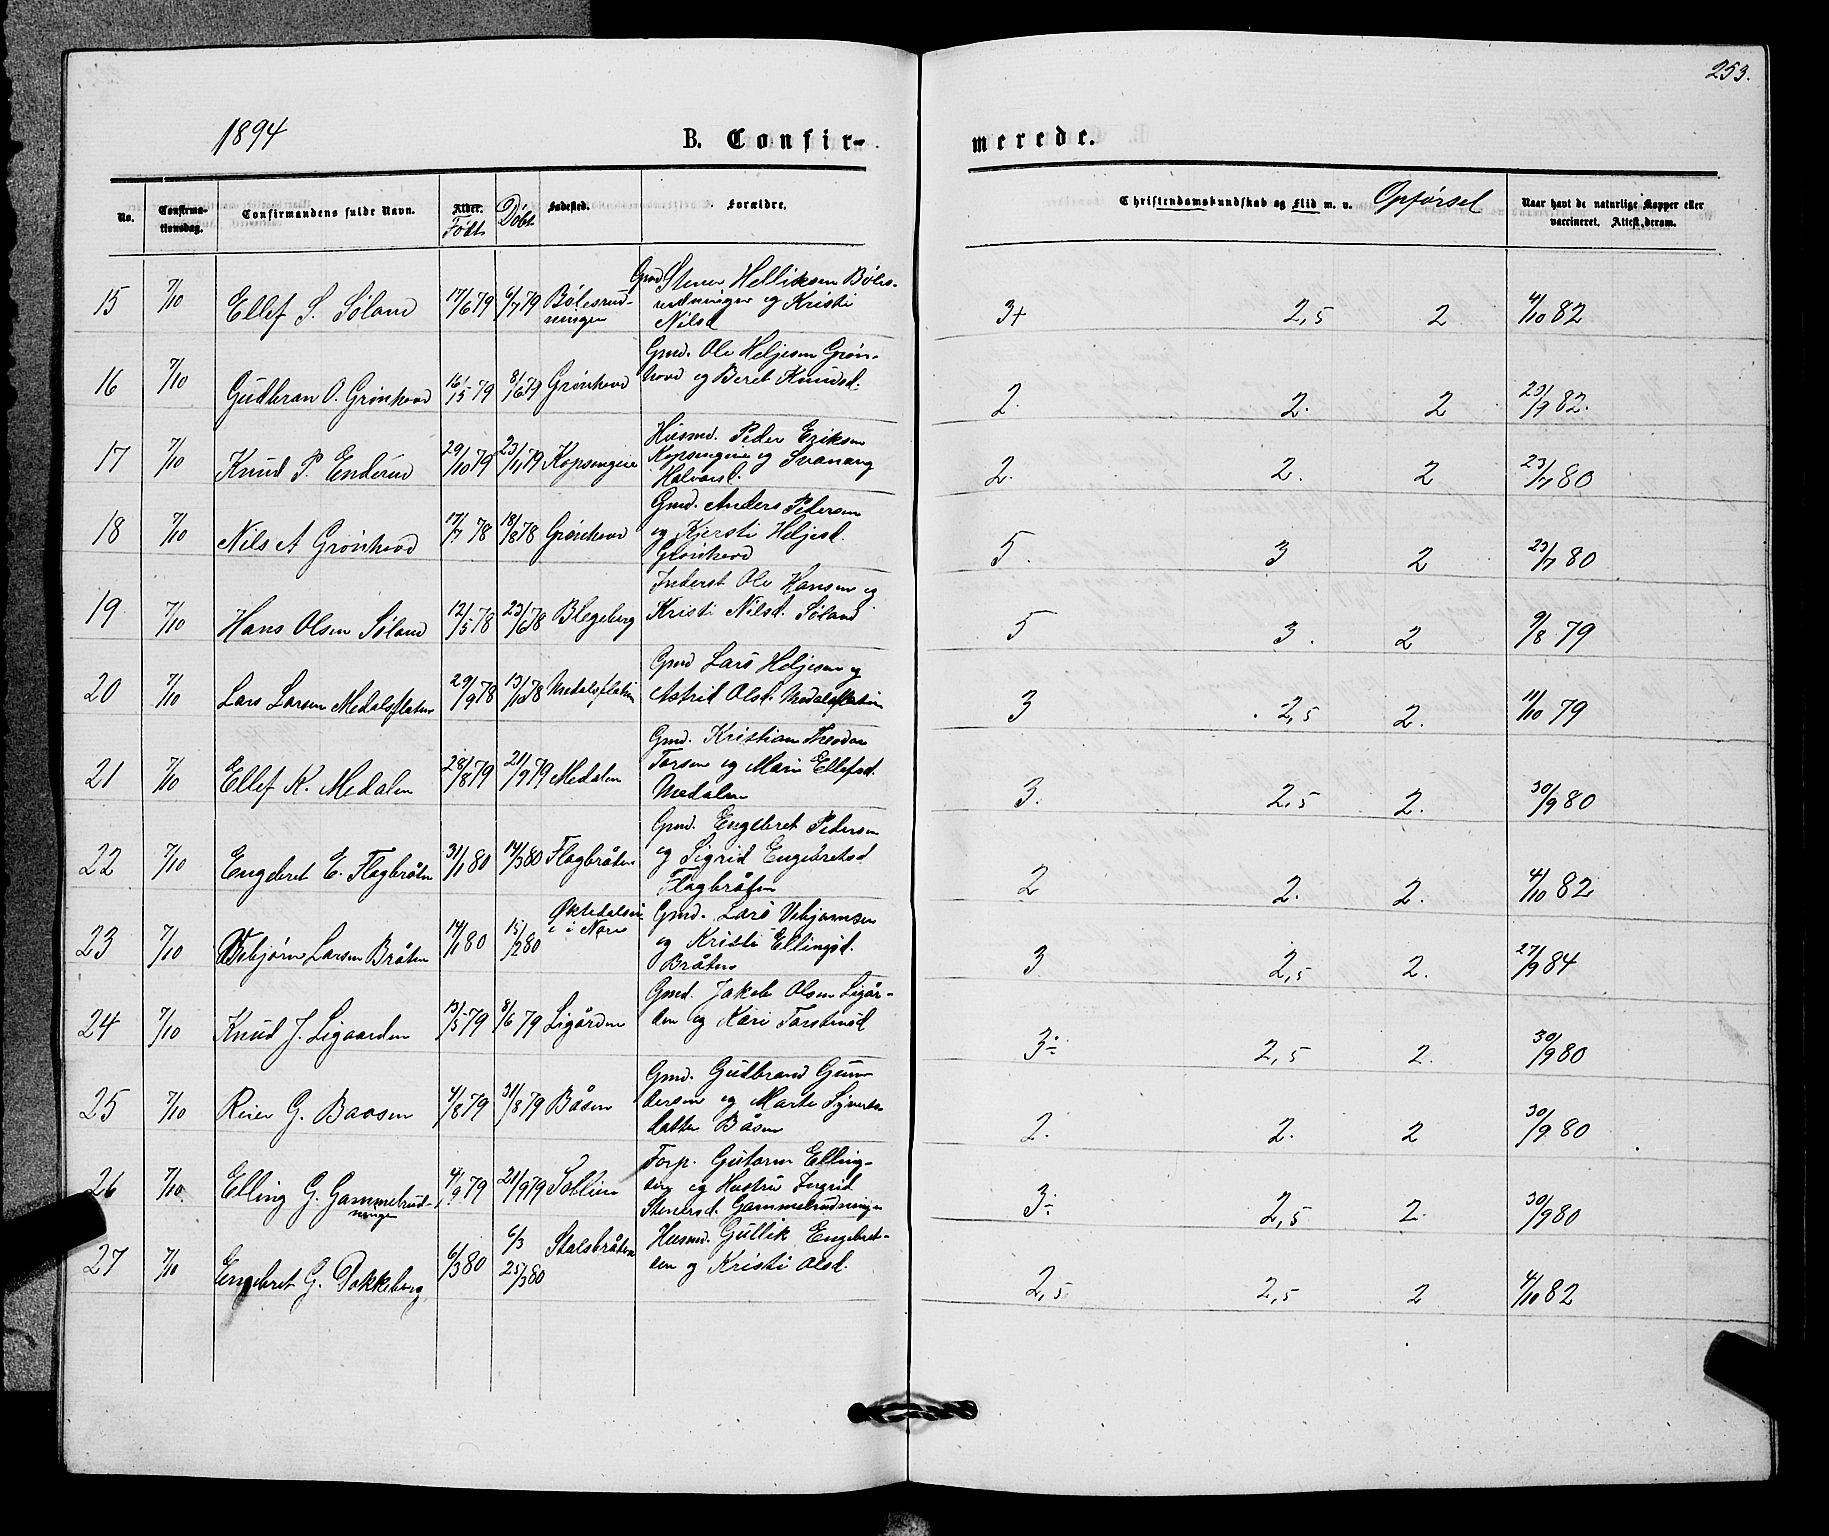 253.
1894
B. Confir-
merede.
No.
Confirma-
tionsdag.
Confirmandens fulde Navn.
Alder.
Født
Døbt
Fødested.
Forældre.
Christendomskundskab og Flid m. v.
Opførsel
Naar havt de naturlige Kopper eller
vaccineret. Attest derom.
15 7/10 Ellef S. Søland 17/6 79 6/7 79 Bølesrud-
ningen
Gmd Stener Helliksen Bøles-
rudningen og Kristi
Nilsd
3+ 2,5 2 4/10 82
16 7/10 Gudbran O. Grønhovd 16/5 79 8/6 79 Grønhovd
Gmd. Ole Heljesen Grøn-
hovd og Beret Knudsd.
2. 2. 2 23/9 82.
17 7/10 Knud P. Enderud 29/10 79 23/11 79 Kopsengeie
Husmd. Peder Eriksen
Kopsengeie og Svanaug
Halvorsd.
2. 2. 2 23/7 80
18 7/10 Nils A Grønhovd 17/7 78 18/8 78 Grønhovd
Gmd. Anders Pedersen
og Kjersti Heljesd.
Grønhovd
5. 3 2 23/7 80
19 7/10 Hans Olsen Søland 12/5 78 23/6 78 Blegeberg
Inderst Ole Hansen og
Kristi Nilsd. Søland
5 3. 2 9/8 79
20 7/10 Lars Larsen Medalsflaten 29/9 78 13/10 78 Medalsflaten
Gmd Lars Heljesen og
Astrid Olsd. Medalsflaten
3 2,5 2. 11/10 79
21 7/10 Ellef K. Medalen 28/8 79 21/9 79 Medalen
Gmd. Kristian Theodor
Torsen og Mari Ellefsd.
Medalen
3. 2,5 2. 30/9 80
22 7/10 Engebret E. Flagbråten 31/1 80 14/3 80 Flagbråten
Gmd. Engebret Pedersen
og Sigrid Engebretsd
Flagbråten
2 2. 2. 4/10 82
23 7/10 Vebjørn Larsen Bråten 14/1 80 15/2 80 Øktedalseie
i Nore
Gmd. Lars Vebjørnsen
og Kristi Ellingsd.
Bråten
3 2,5 2. 27/9 84
24 7/10 Knud J. Ligaarden 13/5 79 8/6 79 Ligården
Gmd. Jakob Olsen Ligår-
den og Kari Torstensd
3÷ 2,5 2. 30/9 80
25 7/10 Reier G. Baasen 4/8 79 31/8 79 Båsen
Gmd. Gudbrand Gun-
dersen og Marte Syverts-
datter Båsen
2. 2. 2 30/9 80
26 7/10 Elling G. Gammelrud-
ningen
4/9 79 21/9 79 Sollien
Forp. Gutorm Elling-
sen og Hustru Ingrid
Stenersd. Gammelrudningen
3÷ 2,5 2. 30/9 80
27 7/10 Engebret G. Dokkeberg 6/3 80 6/3
25/3 80 Stalsbråten
Husmd. Gullik Engebret-
sen og Kristi Olsd.
2,5 2,5 2 4/10 82